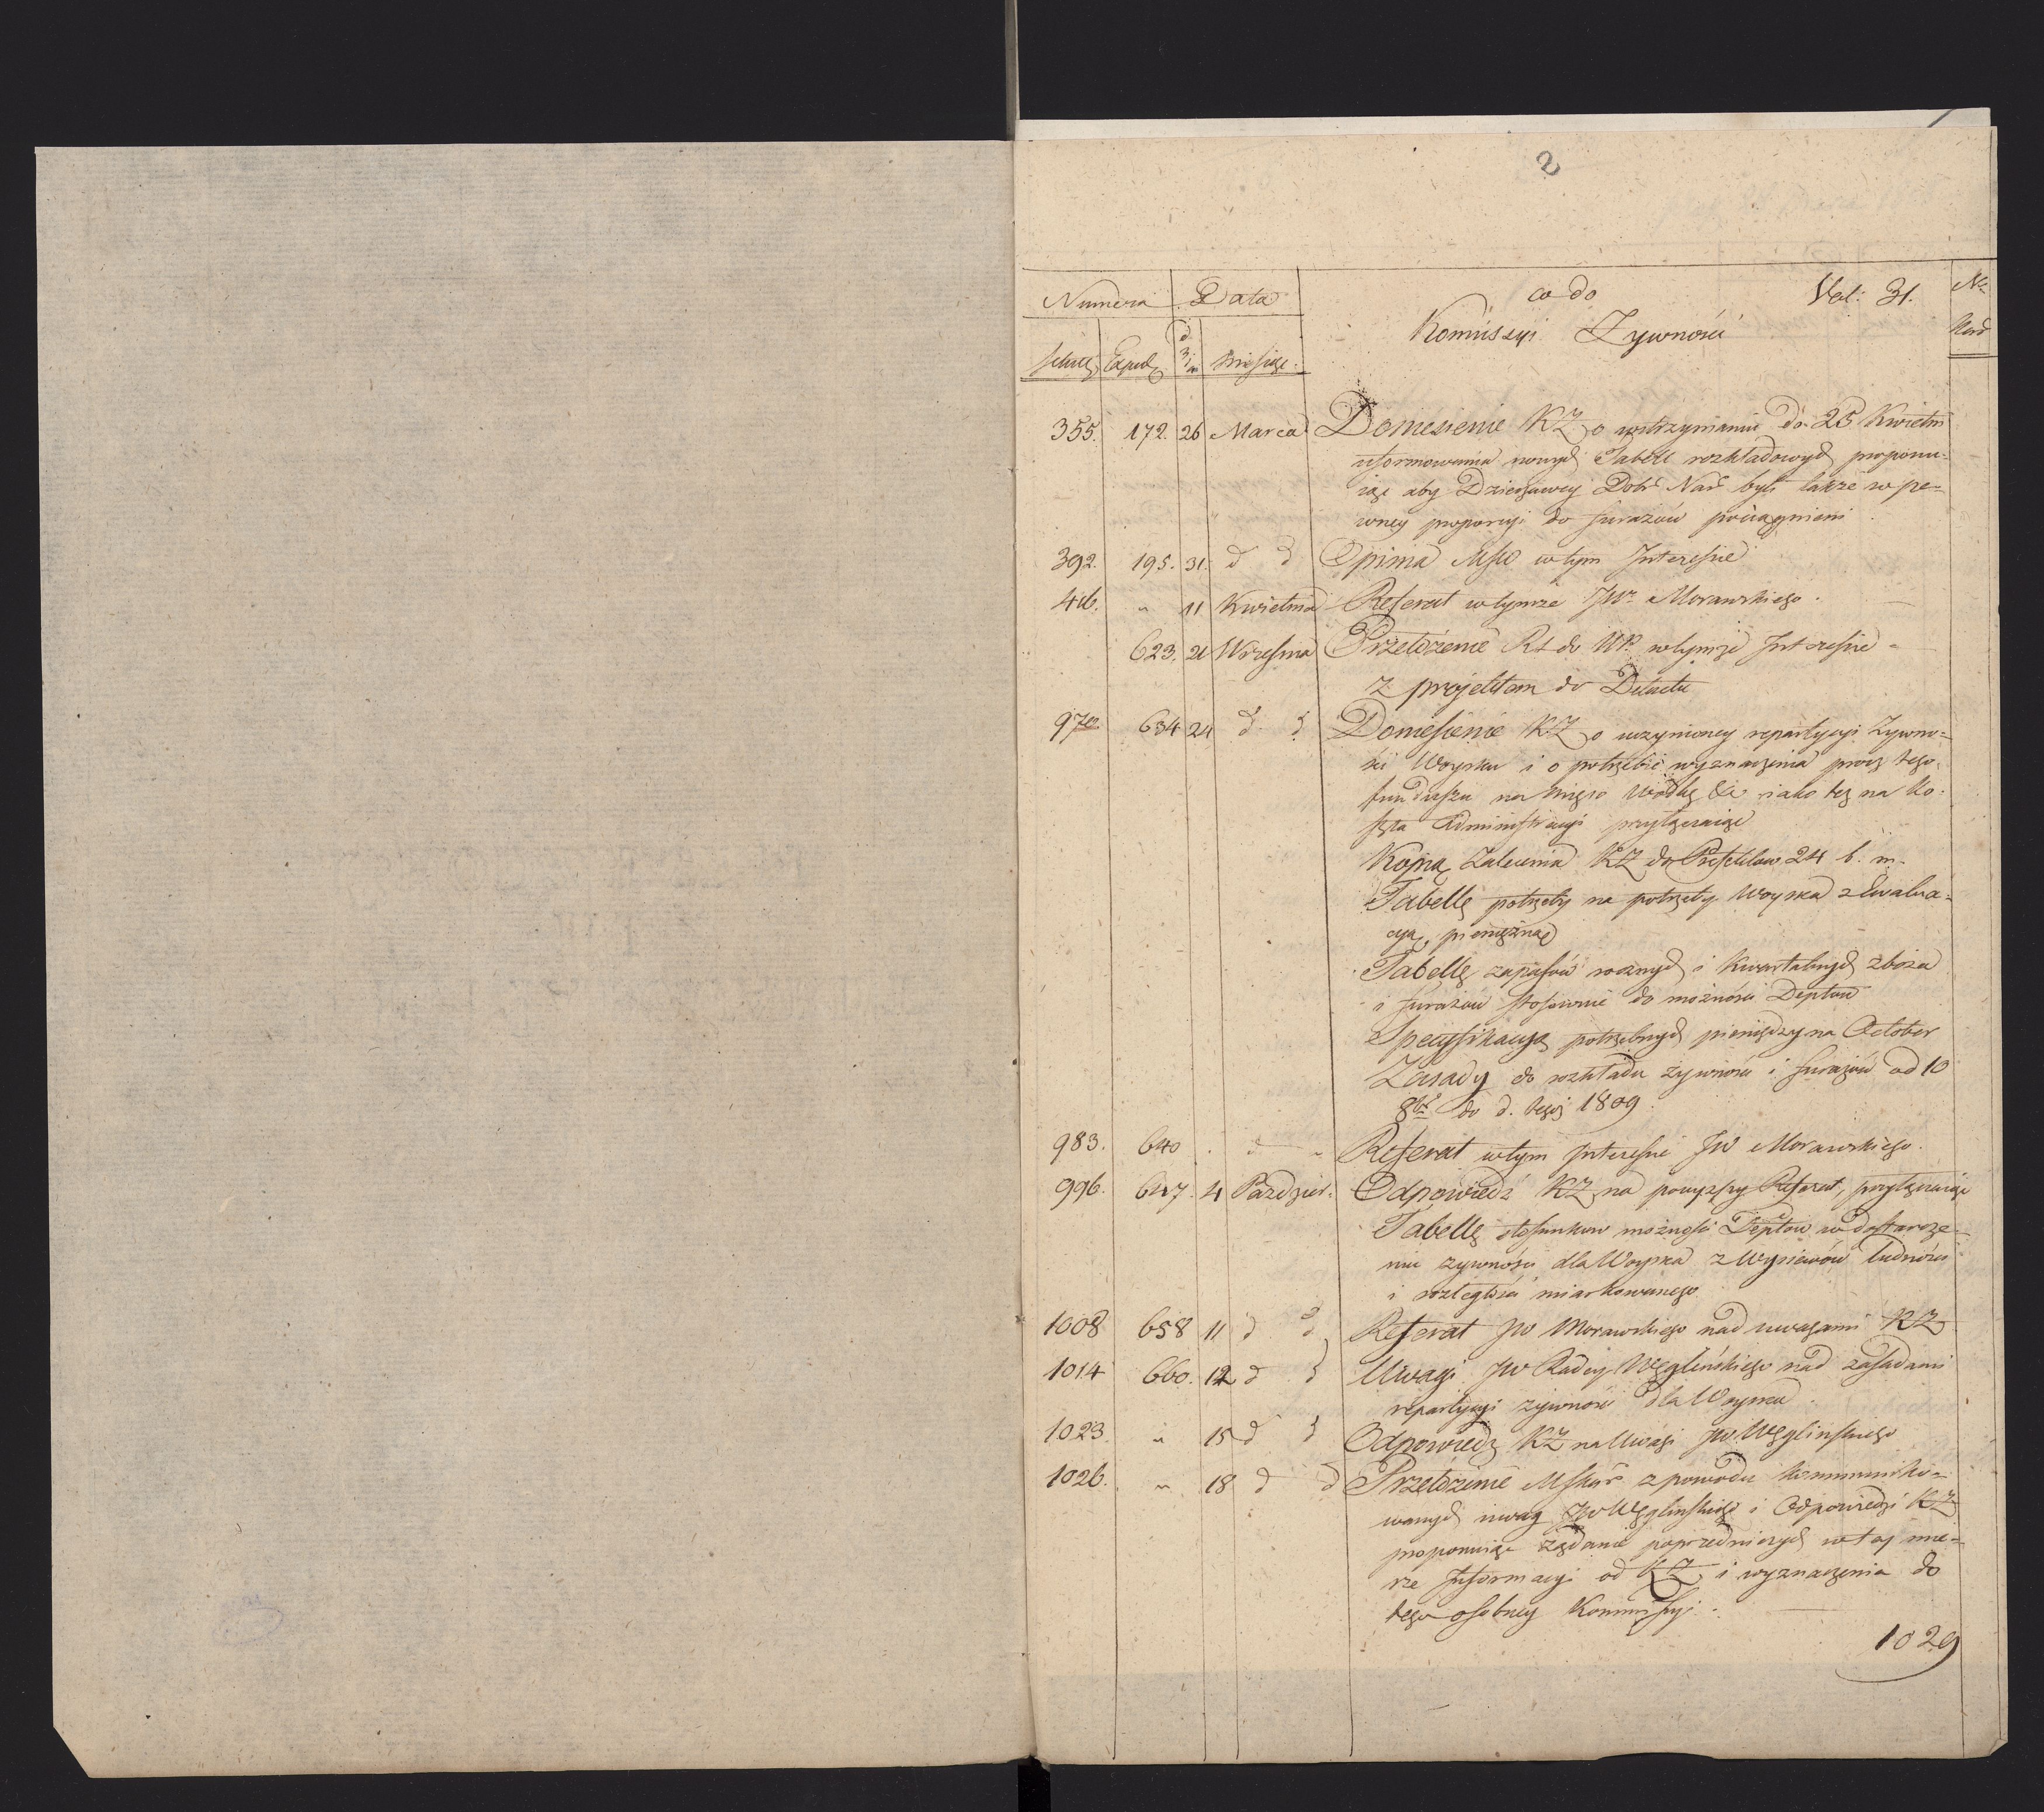 2
Numera Data co do Vol: 31. No
Komissyi Zywności
Exped. d. miesiąc.
355. 172. 26 Marca Doniesienie KZ o wstrzymaniu do 25 Kwietn
uformowania nowych Tabell rozkładowych proponu-
iąc aby Dzierżawcy Dobr Nar byli także w pe-
wney proporcyi do furażów pociągnieni
392. 195. 31. d d Opinia MSW w tym Interesie
416. " 11 Kwietnia Referat w tymże JW. Morawskiego.
623. 21 Wrzesnia Przełożenie RS do NP. w tymże Interesie -
z projektem do Dekretu
972. 634 24 d. d. Doniesienie KZ o uczynioney repartycyi Zywno-
ści Woysku i o potrzebie wyznaczenia procz tego
funduszu na mięso wódkę &c iako też na Ko-
szta Administracyi przyłączaiąc
Kopią Zalecenia KZ do Prefektow 24 b. m.
Tabellę potrzeby na potrzeby Woyska z Ewalua-
cyą pieniężną
Tabellę zapasów rocznych i Kwartalnych zboża
i furażów stosownie do możności Deptow
Specyfikacyą potrzebnych pieniędzy na October
Zasady do rozkładu żywności i furażów od 10
8br do d. tegoż 1809.
983. 640 . d " Referat w tym Interesie JW Morawskiego.
996. 647. 4 Paździer. Odpowiedź KZ na powyższy Referat, przyłączaiąc
Tabellę stosunkow możności Deptow w dostarcze-
niu żywności dla Woyska z Wysiewów ludności
i rozległości miarkowanego.
1008 658 11 d d Referat JW Morawskiego nad uwagami KZ
1014 660. 12 d d Uwagi JW Radcy Węgleńskiego nad zasadami
repartycyi żywności dla Woyska.
1023. " 15 d d Odpowiedź KZ na Uwagi JW Węglińskiego
1026. " 18 d d Przełożenie MSkar z powodu kommuniko-
wanych uwag JW Węglińskiego i Odpowiedzi KZ
proponuiąc żądanie poprzedniczych w tej mie-
rze Informacyi od KZ i wyznaczenia do
tego osobney Kommissyi.
1029